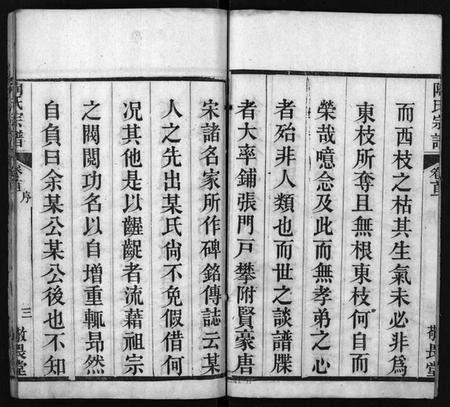 陶氏宗譜
卷首
敬長堂
而西枝之枯其生氣未必非為
東枝所奪且無根東枝何自而
榮哉噫念及此而無孝弟之心
者殆非人類也而世之談譜牒
者大率鋪張門戶攀附賢豪唐
宋諸名家所作碑銘傳誌云某
人之先出某氏尙不免假借何
況其他是以齷齪者流藉祖宗
之閥閱功名以自增重輒昂然
自負曰余某公某公後也不知
陶氏宗譜
卷首
序
三
敬長堂